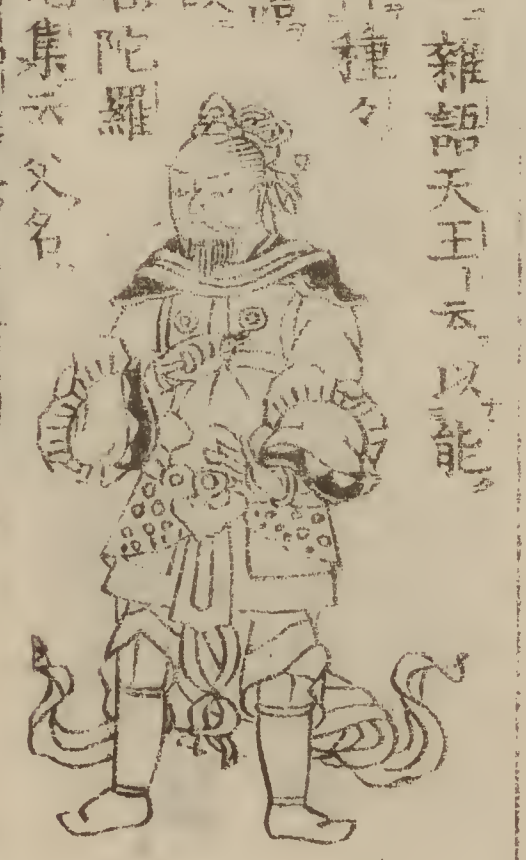 雜語天王ー云以能
種々
陀羅
集云父名